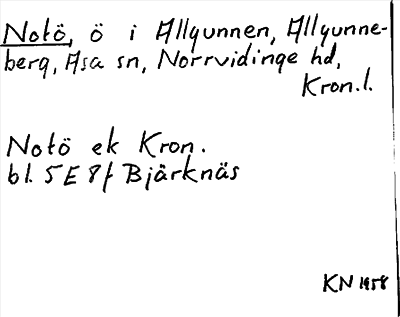 Notö, ö i Allgunnen, Allgunne-
berg, Asa sn, Norrvidinge hd,
Kron.l.
Notö ek Kron.
bl. 5E 8f Bjärknäs
KN 1958